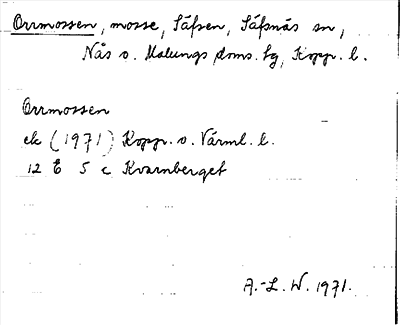 Orrmossen, mosse, Säfsen, Säfsnäs sn,
Nås o. Malungs doms. sg, Kopp. l.
Orrmossen
ek (1971) Kopp. o. Värml. l.
12 E 5 c Kvarnberget
A.-L. W. 1971.